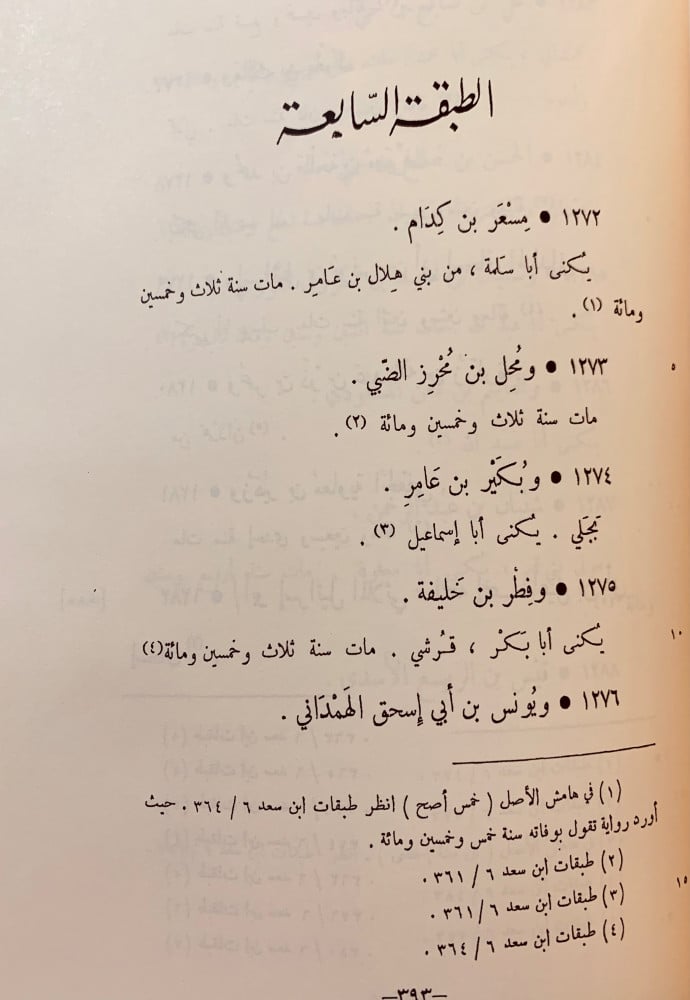 الطبقة السّابعة
١٢٧٢ ● مِسْعَر بن كِدَام .
يُكنى أبا سَلمة ، من بني هِلال بن عَامِر . مات سنة ثلاث وخمسين
ومائة (١) .
٥
١٢٧٣ ● ومُحِل بن مُحْرِز الضّبي .
مات سنة ثلاث وخمسين ومائة (٢) .
١٢٧٤ ● وبُكَيْر بن عَامِرِ .
بَجَلي . يُكنى أبا إسماعيل (٣) .
١٢٧٥ ● وفِطْر بن خَليفة .
١٠
يُكنى أبا بَكرْ ، قُرشي . مات سنة ثلاث وخمسين ومائة(٤)
١٢٧٦ ● ويُونس بن أبي إسحق الهَمْدَاني .
(١) في هامش الأصل ( خمس أصح ) انظر طبقات ابن سعد ٦ / ٣٦٤ . حيث
أورد رواية تقول بوفاته سنة خمس وخمسين ومائة .
(٢) طبقات ابن سعد ٦ / ٣٦١ .
١٥
(٣) طبقات ابن سعد ٦ / ٣٦١ .
(٤) طبقات ابن سعد ٦ / ٣٦٤ .
—٣٩٣—